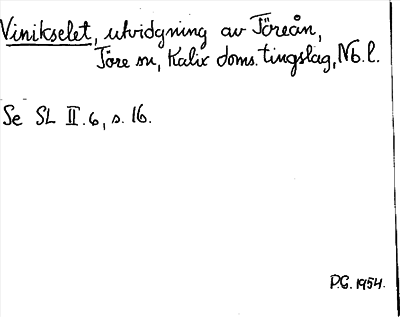 Vinikselet, utvidgning av Töreån,
Töre sn, Kalix doms. tingslag, Nb. l.
Se SL II.6, s. 16.
P.G. 1954.